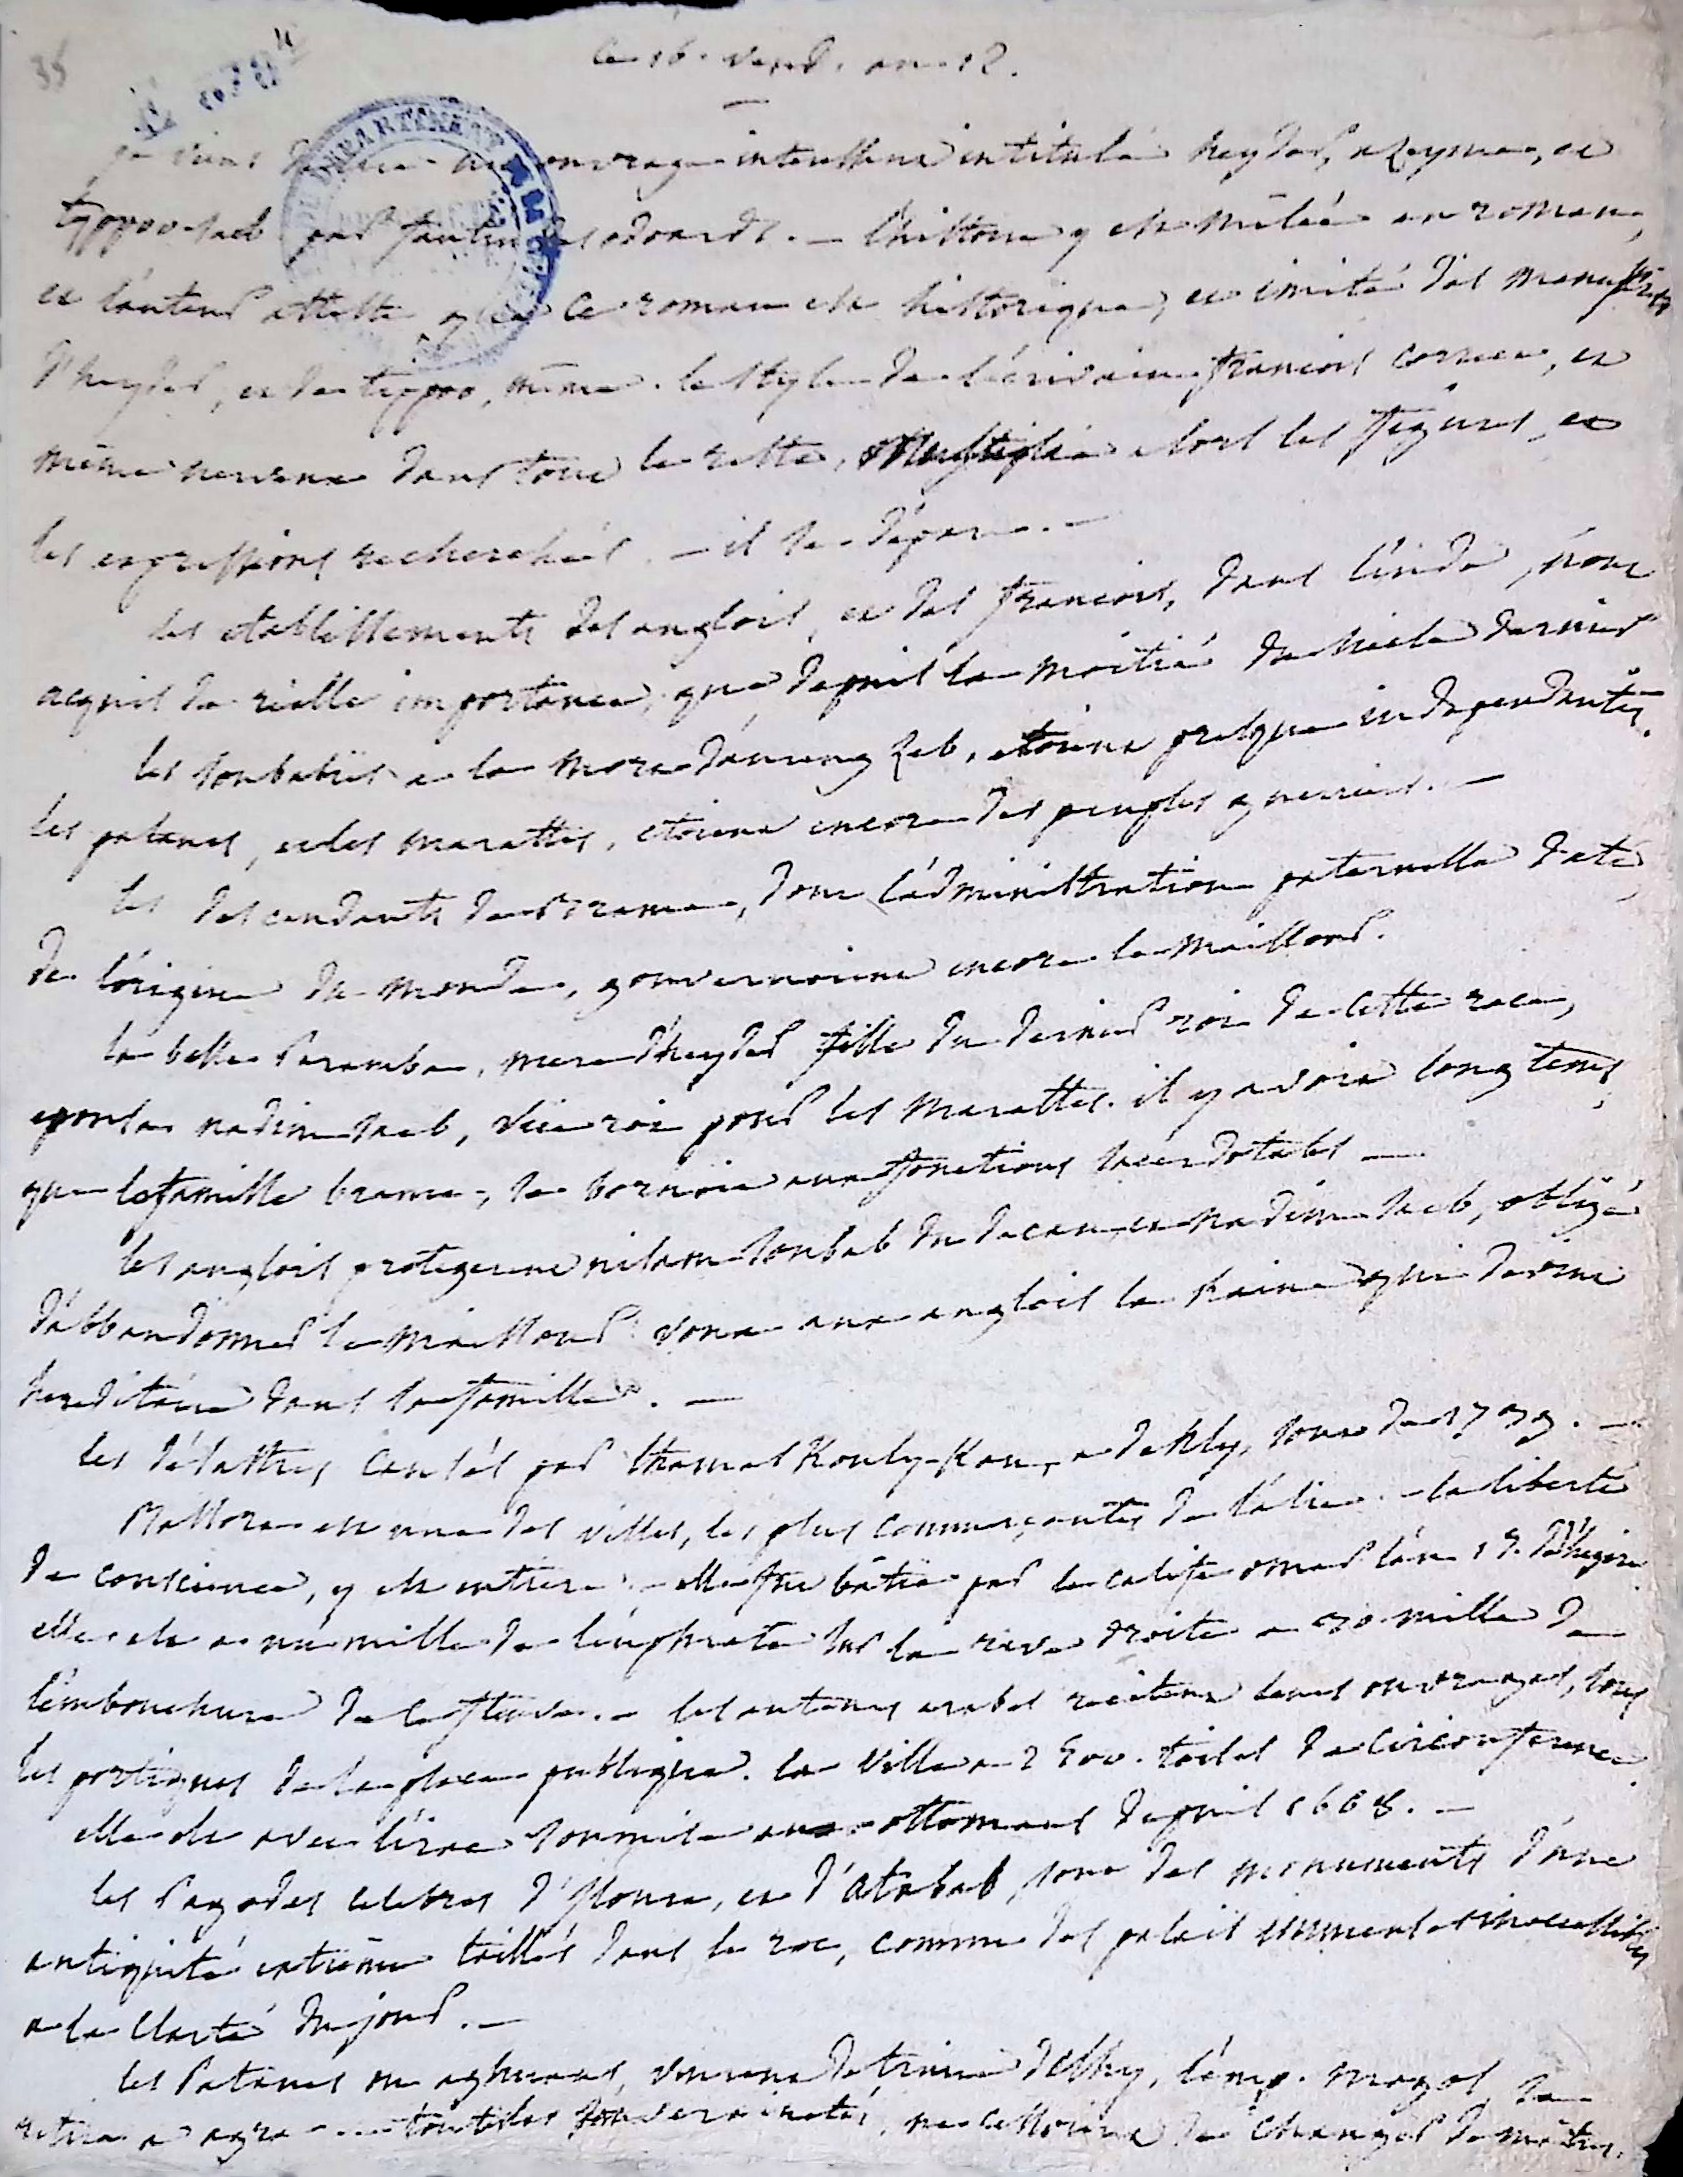 35
ce 16. vend. an 12.
je viens de lire un ouvrage interessant intitulé heyder, azeyma, et
typpoo-saeb par fantin des odoards. – l'histoire y est mêlée au roman,
et l'auteur atteste que ce roman est historique, et imité des manuscrits
d'heyder, et de tippoo, même. le style de l'écrivain françois correct, et
même nerveux dans tout le reste, multiplie alors les figures, et
les expressions recherchées. – il se dépare. –
les etablissements des anglois, et des françois, dans l'inde, n'ont
acquis de réelle importance, que depuis la moitié du siecle dernier
les soubabies a la mort d'aureng zeb, etoient presque independantes.
les patanes, et les marattes, etoient encore des peuples guerriers. –
les descendants de brama, dont l'administration paternelle date
de l'origine du monde, gouvernoient encore le maissour.
la belle Saramba, mere d'heyder fille du dernier roi de cette race,
epousa nadim saeb, vice roi pour les marattes. il y avoit long tems,
que la famille brame, se bornoit aux fonctions sacerdotales —
les anglois protegerent nisam soubab du decan, et nadim saeb, obligé
d'abbandonner le maissour voua aux anglois la haine qui devint
hereditaire dans sa famille. —
les désastres causés par thamas Kouly-Kan, a dehly, sont de 1739. –
Bassora est une des villes, les plus commerçantes de l'asie. – la liberté
de conscience, y est entiere. – elle fut bâtie par le calife omar l'an 15. d'hegire
elle est a un mille de l'euphrate sur la rive droite a 30 mille de
l'embouchure de ce fleuve. – les auteurs arabes recitent leurs ouvrages, sous
les portiques de la place publique. la ville a 2500. toises de circonference
elle est avec l'irac soumise aux ottomans depuis 1668. –
les Pagodes celebres d'Eloura, et d' sont des monuments d'une
antiquité extrême taillés dans le roc, comme des palais immenses inaccessibles
a la clarté du jour. –
les Patanes ou aghwans, vinrent detruire dehly, l'emp. mogol se
retira a agra toutes les souverainetés, ne cessoient de changer de maitres.